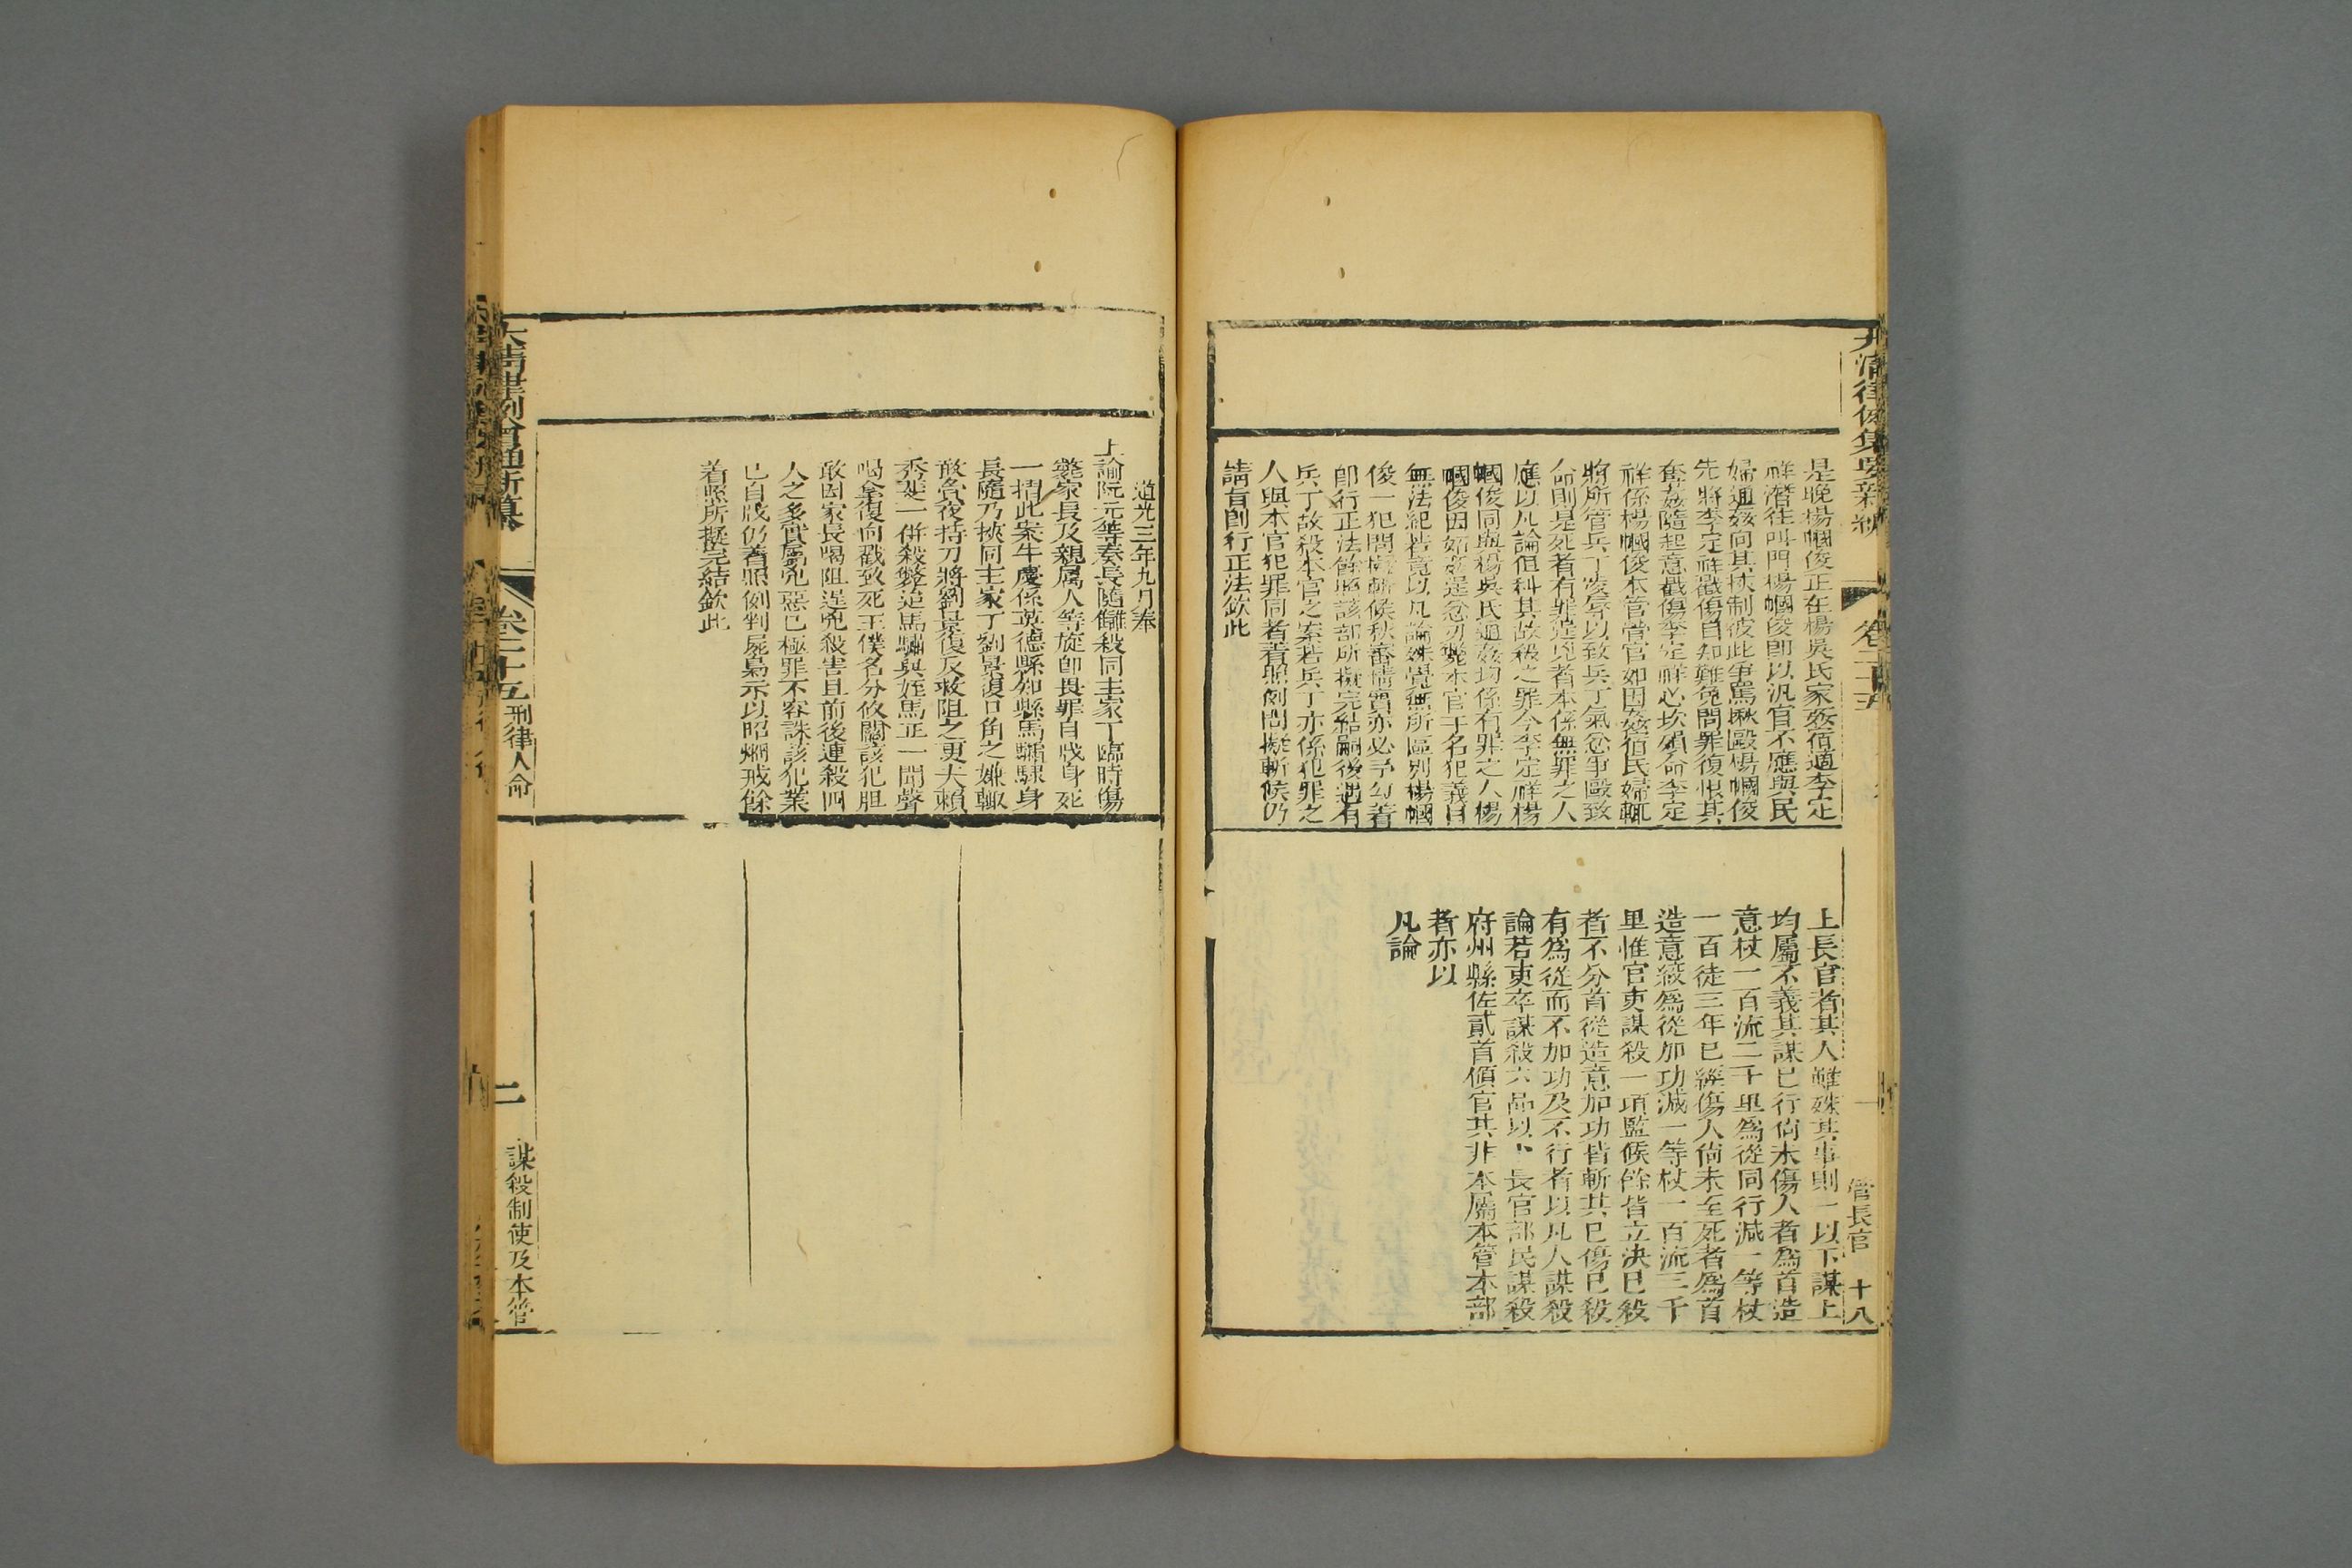 大清律例彙集要新編
卷二十五
管長官
十八
是晚楊幗俊正在楊吳氏家姦宿適李定
祥潛往叫門楊幗俊卽以汛官不應與民
婦通姦向其挾制彼此爭罵揪毆楊幗俊
先將李定祥戳傷自知難免問罪復恨其
奪姦隨起意戳傷李定祥心坎殞命李定
祥係楊幗俊本管營官如因姦宿民婦輒
將所管兵丁凌辱以致兵丁氣忿爭毆致
命則是死者有罪逞兇者本係無罪之人
應以凡論但科其故殺之罪今李定祥楊
幗俊同與楊吳氏通姦均係有罪之人楊
幗俊因妬姦逞忿刃斃本官干名犯義目
無法紀若竟以凡論殊覺無所區別楊幗
俊一犯問擬斬候秋審情實亦必予勾着
卽行正法餘照該部所擬完結嗣後遇有
兵丁故殺本官之案若兵丁亦係犯罪之
人與本官犯罪同者着照例問擬斬候仍
請旨卽行正法欽此
上長官者其人雖殊其事則一以下謀上
均屬不義其謀已行尚未傷人者爲首造
意杖一百流二千里爲從同行減一等杖
一百徒三年已經傷人尚未至死者爲首
造意絞爲從加功減一等杖一百流三千
里惟官吏謀殺一項監候餘皆立決已殺
者不分首從造意加功皆斬其已傷已殺
有爲從而不加功及不行者以凡人謀殺
論若吏卒謀殺六品以下長官部民謀殺
府州縣佐貳首領官其非本屬本管本部
者亦以
凡論
道光三年九月奉
上諭阮元等奏長隨讎殺同主家丁臨時傷
斃家長及親屬人等旋卽畏罪自戕身死
一摺此案牛慶係英德縣知縣馬驌騄身
長隨乃挾同主家丁劉景復口角之嫌輒
敢黃夜持刀將劉景復及救阻之更夫賴
秀斐一併殺斃迨馬驌與姪馬正一聞聲
喝拿復向戳致死主僕名分攸關該犯胆
敢因家長喝阻逞兇殺害且前後連殺四
人之多實屬兇惡已極罪不容誅該犯業
已自戕仍着照例剉屍梟示以昭炯戒餘
着照所擬完結欽此
大清律例會通新纂
卷二十五刑律人命
二
謀殺制使及本管